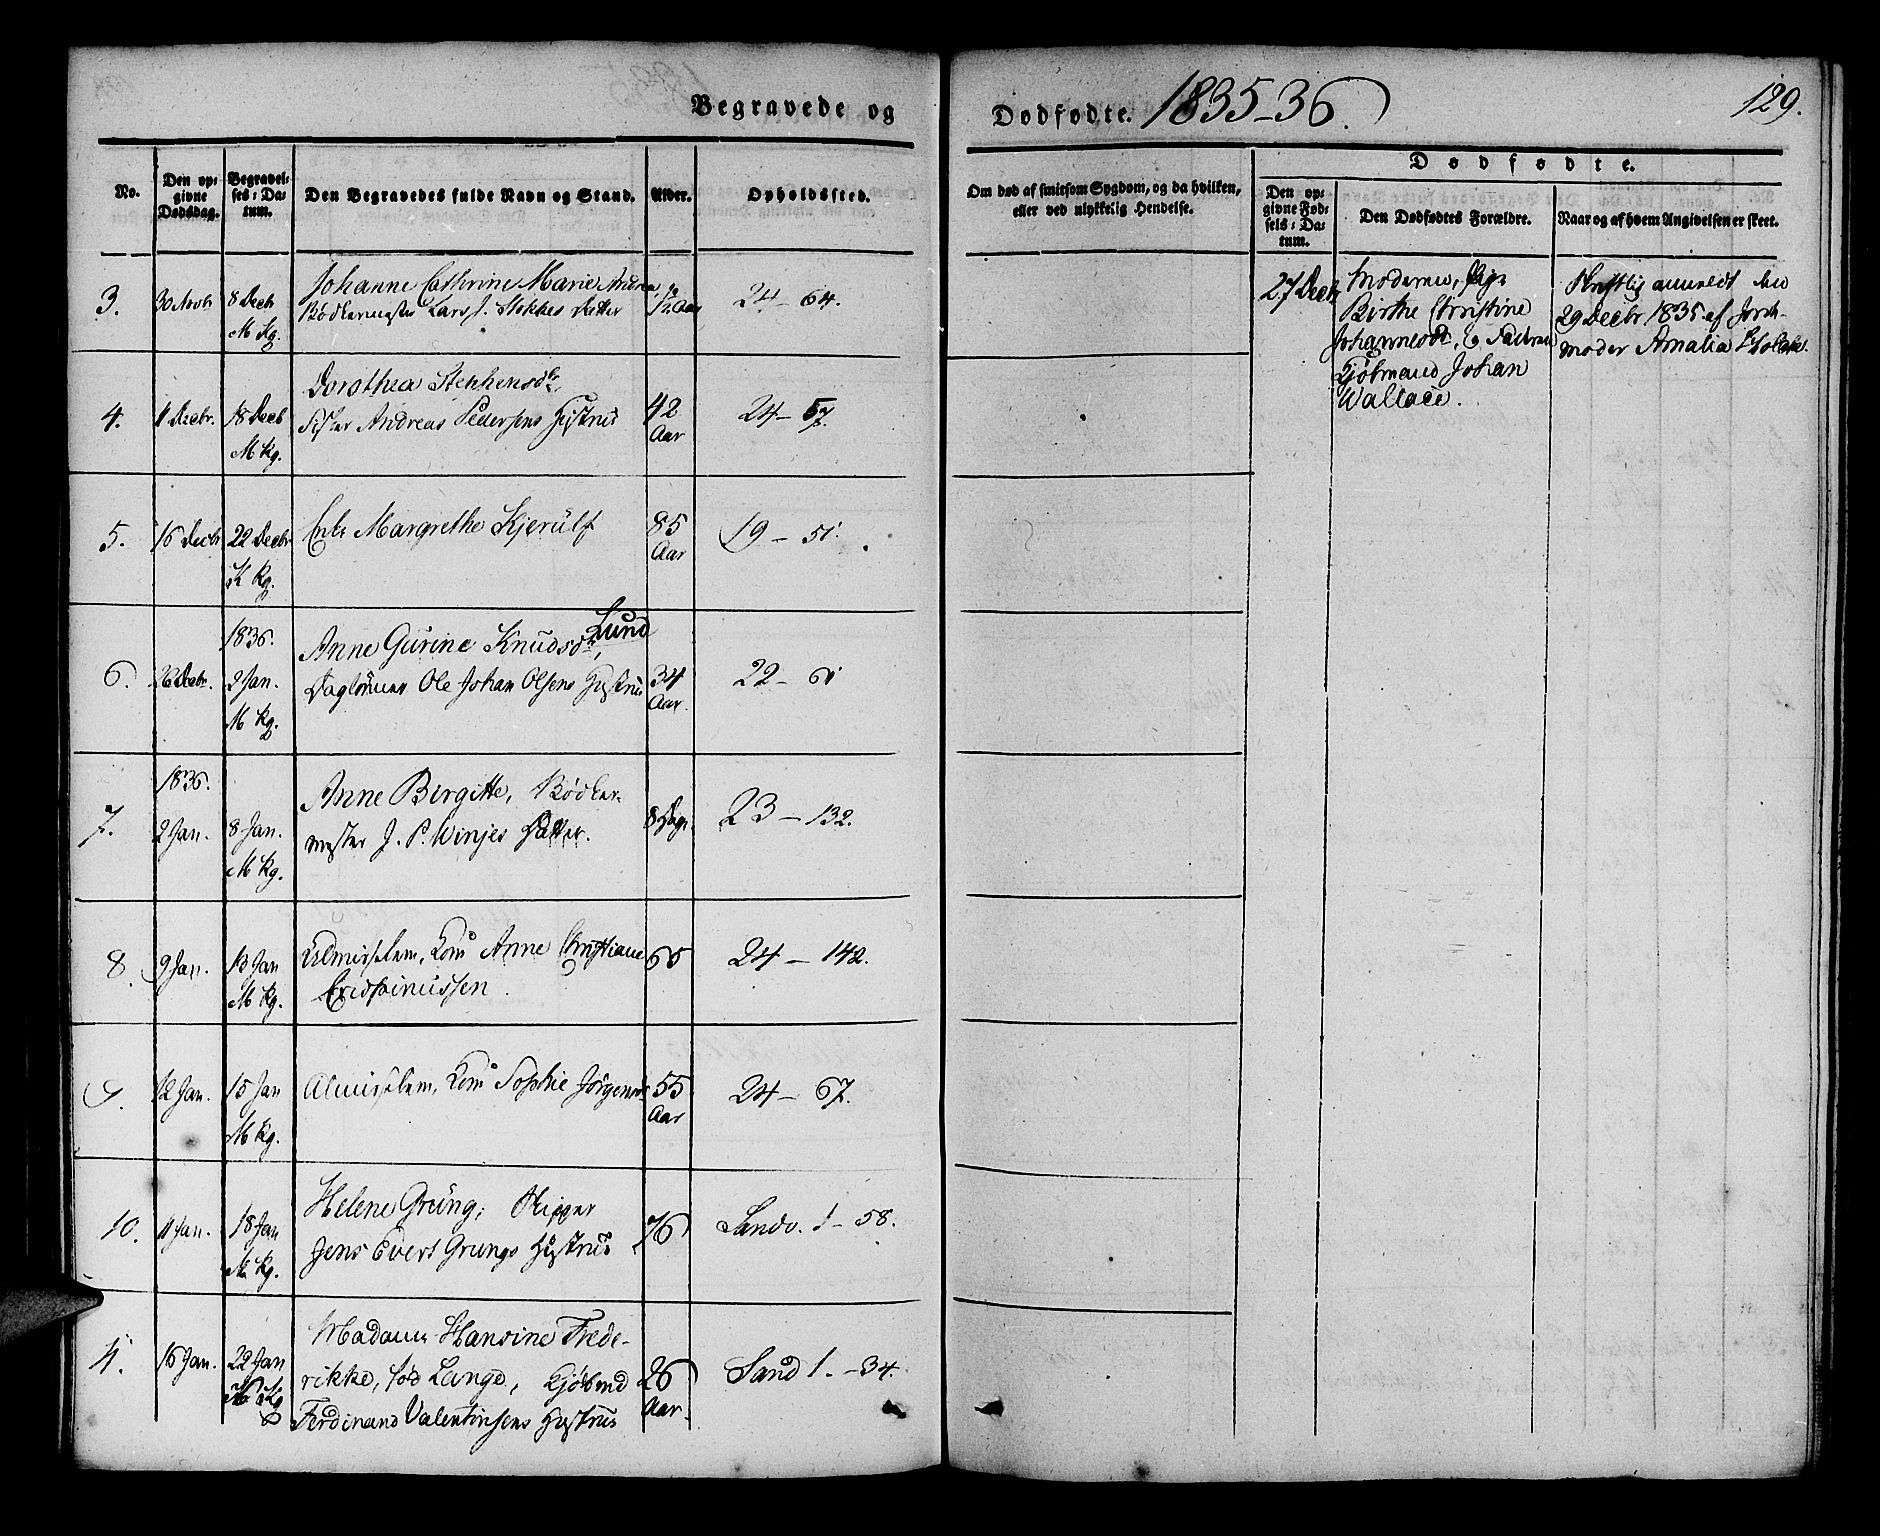 Begravede og
Dødfødte. 1835-36.
129.
No.
Den op=
givne
Dødsdag.
Begravel=
ses=Da=
tum.
Den Begravedes fulde Navn og Stand.
Alder.
Opholdssted.
Om død af smitsom Sygdom, og da hvilken,
eller ved ulykkelig Hendelse.
Dødfødte.
Den op=
givne Fød=
sels=Da=
tum.
Den Dødfødtes Forældre.
Naar og af hvem Angivelsen er skeet.
3.
30 Novbr
8 Decb
M Kg.
Johanne Cathrine Marie Andrea,
Bødkermester Lars J. Stokkes Datter
1/2 Aar
24 - 64.
27 Decb
Moderen, Pige
Birthe Christine
Johannesdt, og Faderen
Kjøbmand Johan
Wallace.
Skriftlig anmeldt den
29 Decbr 1835 af Jord-
moder Amalia
4.
11 Decbr.
18 Decb
M Kg.
Dorothea Stephensdtr,
Fisker Andreas Pedersens Hustrue
42
Aar
24 - 57.
5.
16 Decbr
22 Decbr
K Kg.
Enke Margrethe Kjerülf
85
Aar
19 - 51.
6.
26 Decbr.
1836.
2 Jan.
M Kg.
Anne Gurine Knudsdtr, Lund
Daglønner Ole Johan Olsens Hustrue
34
Aar.
22 - 61
7.
1836.
2 Jan.
8 Jan.
M Kg.
Anne Birgitte, Bødker-
mester J. P. Winjes Datter.
8 Dage
23 - 132.
8.
9 Jan.
13 Jan
M Kg.
Almisselem, Kone Anne Christiane
Crispinussen.
65
24 - 142.
9.
12 Jan.
15 Jan
M Kg.
Almisselem, Kone Sophie Jørgensen
55
Aar
24 - 67.
10.
11 Jan.
18 Jan
M Kg.
Helene Grüng, Skipper
Jens Evert Grungs Hustrue
76
Sandv. 1 - 58.
11.
16 Jan.
22 Jan
Kg
Madame Hansine Frede-
rikke, fød Lange, Kjøbmd
Ferdinand Valentinsens Hustrue
26
Aar.
Sandv 1. - 34.